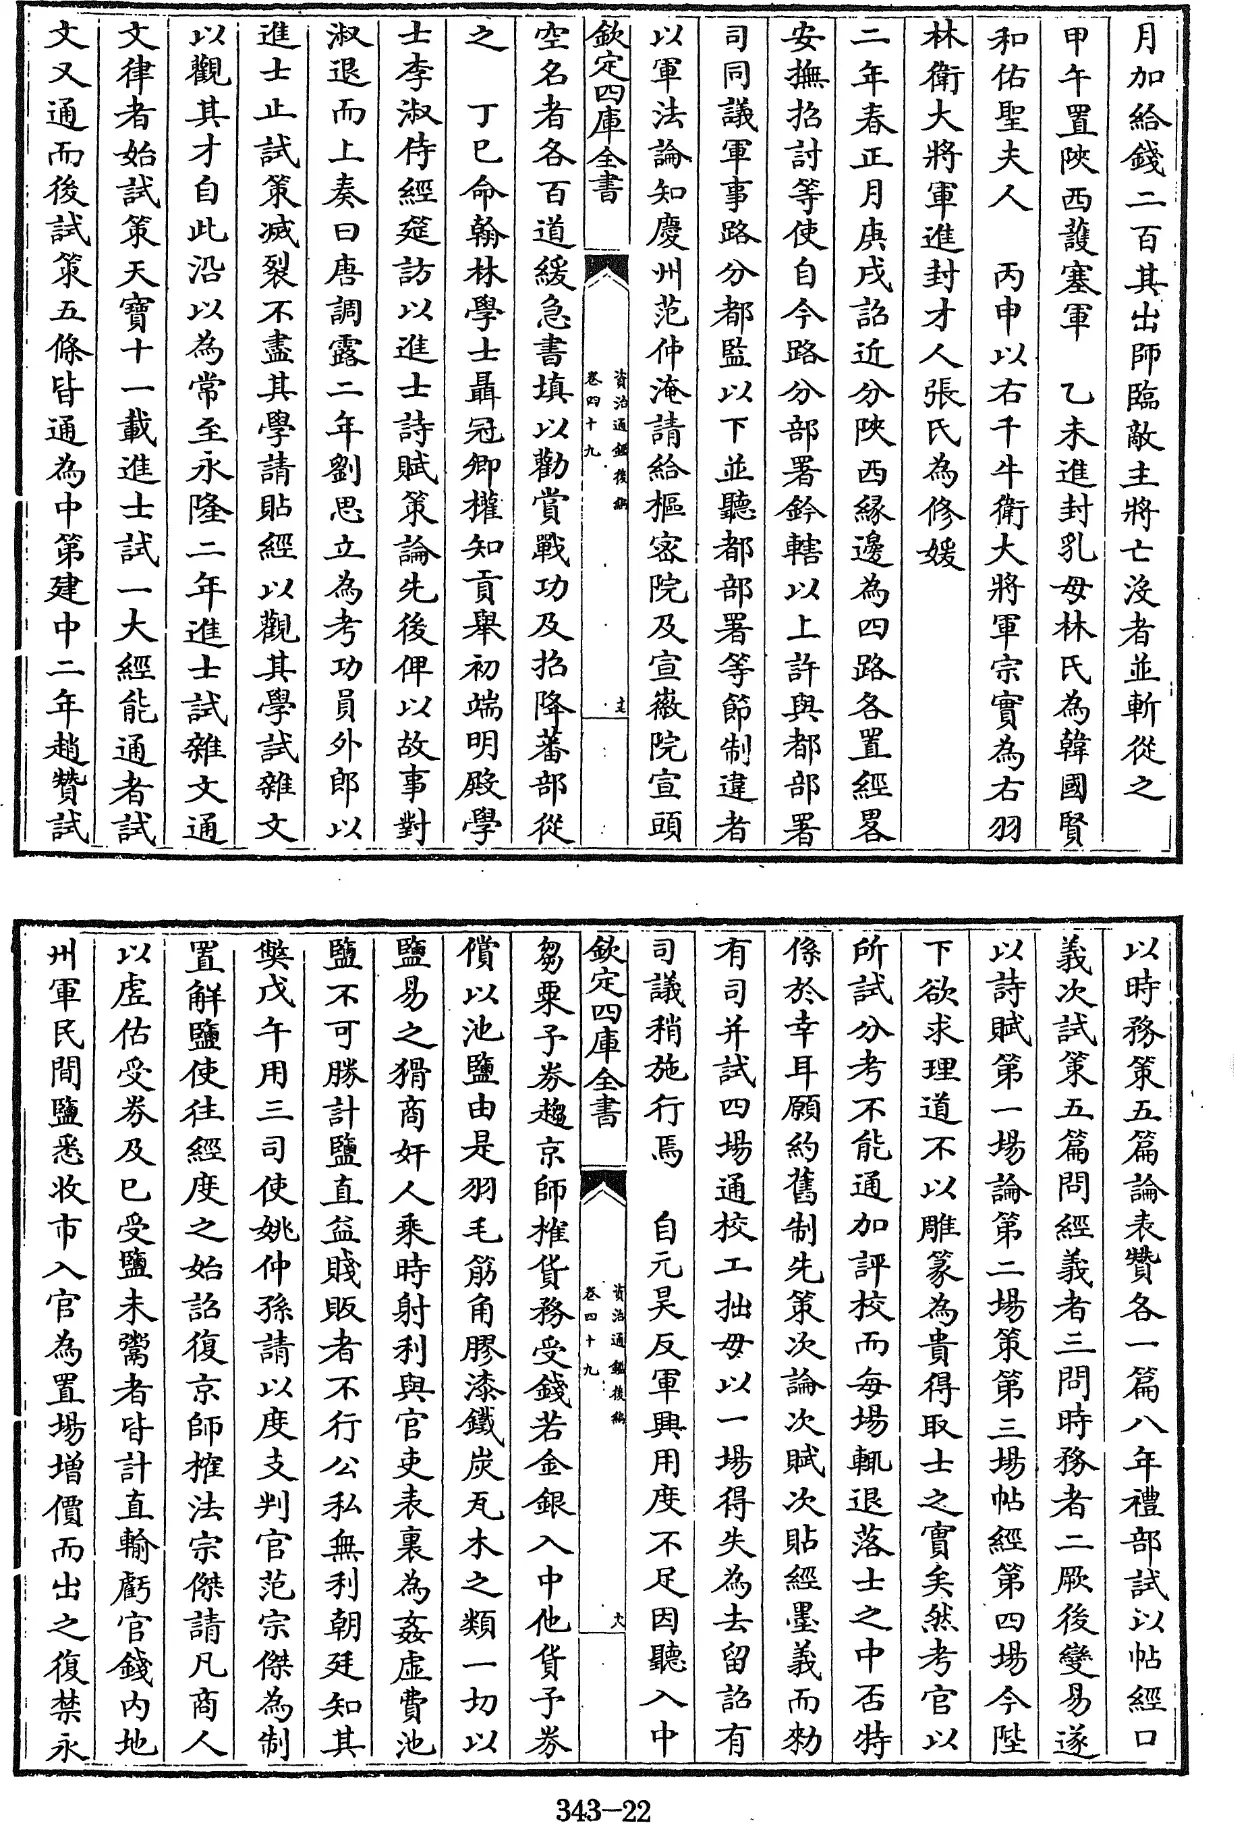 月加給錢二百其出師臨敵主將亡沒者並斬從之
甲午置陜西護塞軍　乙未進封乳母林氏為韓國賢
和佑聖夫人　丙申以右千牛衛大將軍宗實為右羽
林衛大將軍進封才人張氏為修媛
二年春正月庚戌詔近分陜西緣邊為四路各置經畧
安撫招討等使自今路分部署鈐轄以上許與都部署
司同議軍事路分都監以下並聽都部署等節制違者
以軍法論知慶州范仲淹請給樞密院及宣徽院宣頭
欽定四庫全書
資治通鑑後編
卷四十九
空名者各百道緩急書填以勸賞戰功及招降蕃部從
之　丁巳命翰林學士聶冠卿權知貢舉初端明殿學
士李淑侍經筵訪以進士詩賦策論先後俾以故事對
淑退而上奏曰唐調露二年劉思立為考功員外郎以
進士止試策滅裂不盡其學請貼經以觀其學試雜文
以觀其才自此沿以為常至永隆二年進士試雜文通
文律者始試策天寶十一載進士試一大經能通者試
文又通而後試策五條皆通為中第建中二年趙贊試
以時務策五篇論表贊各一篇八年禮部試以帖經口
義次試策五篇問經義者三問時務者二厥後變易遂
以詩賦第一場論第二場策第三場帖經第四場今陛
下欲求理道不以雕篆為貴得取士之實矣然考官以
所試分考不能通加評校而每場輒退落士之中否特
係於幸耳願約舊制先策次論次賦次貼經墨義而勑
有司并試四場通校工拙毋以一場得失為去留詔有
司議稍施行焉　自元昊反軍興用度不足因聽入中
欽定四庫全書
資治通鑑後編
卷四十九
六
芻粟予券趨京師榷貨務受錢若金銀入中他貨予券
償以池鹽由是羽毛筋角膠漆鐵炭瓦木之類一切以
鹽易之猾商奸人乘時射利與官吏表裏為姦虛費池
鹽不可勝計鹽直益賤販者不行公私無利朝廷知其
獘戊午用三司使姚仲孫請以度支判官范宗傑為制
置解鹽使往經度之始詔復京師榷法宗傑請凡商人
以虛估受券及已受鹽未鬻者皆計直輸虧官錢內地
州軍民間鹽悉收市入官為置場增價而出之復禁永
343-22